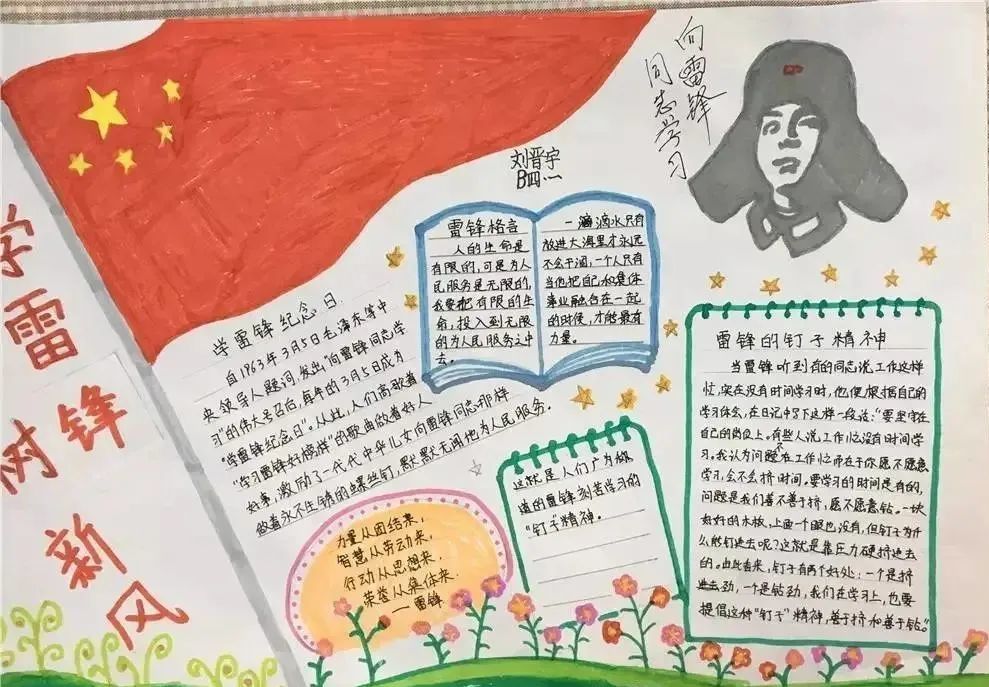 学雷锋
树新风
向雷锋
同志学习
刘晋宇
B四(一)
学雷锋纪念日
自1963年3月5日毛泽东等中
央领导人题词,发出"向雷锋同志学
习"的伟大号召后,每年的3月5日成为
"学雷锋纪念日"。从此,人们高歌着
"学习雷锋好榜样"的歌曲做着好人
好事,激励了一代代中华儿女向雷锋同志那样
做着永不生锈的螺丝钉,默默无闻地为人民服务。
雷锋格言
人的生命是
有限的,可是为人
民服务是无限的,
我要把有限的生
命,投入到无限
的为人民服务之中
去。
一滴滴水只有
放进大海里才永远
不会干涸,一个人只有
当他把自己和集体
事业融合在一起
的时候,才能最有
力量。
力量从团结来,
智慧从劳动来,
行动从思想来,
荣誉从集体来.
——雷锋
这就是人们广为
道的雷锋刻苦学习的
"钉子"精神。
雷锋的钉子精神
当雷锋听到有的同志说工作这样
忙,实在没有时间学习时,他便根据自己的
学习体会,在日记中写下这样一段话:"要坚守在
自己的岗位上。有些人说工作忙没有时间学
习,我认为问题不在工作忙而在于你愿不愿意
学习,会不会挤时间。要学习的时间是有的,
问题是我们善不善于挤,愿不愿意钻。一块
好好的木板,上面一个眼也没有,但钉子为什
么能钉进去呢?这就是靠压力硬挤进去
的。由此看来,钉子有两个好处:一个是挤
进去劲,一个是钻劲,我们在学习上,也要
提倡这种"钉子"精神,善于挤和善于钻。"